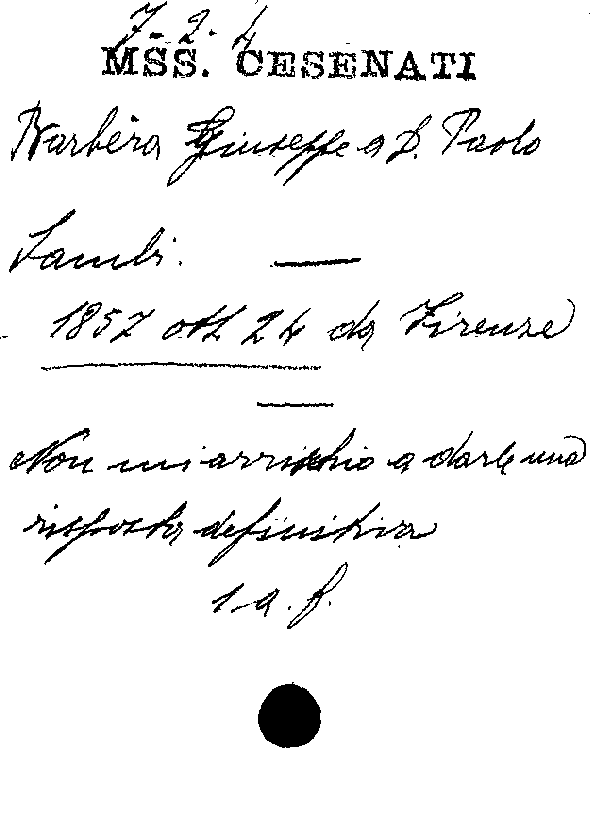 7. 2. 4
MSS. CESENATI
Barbèra Giuseppe a D. Paolo
Sambi.
1857 ott 24 da Firenze
Non mi arrischio a darle una
risposta definitiva
1 a. f.